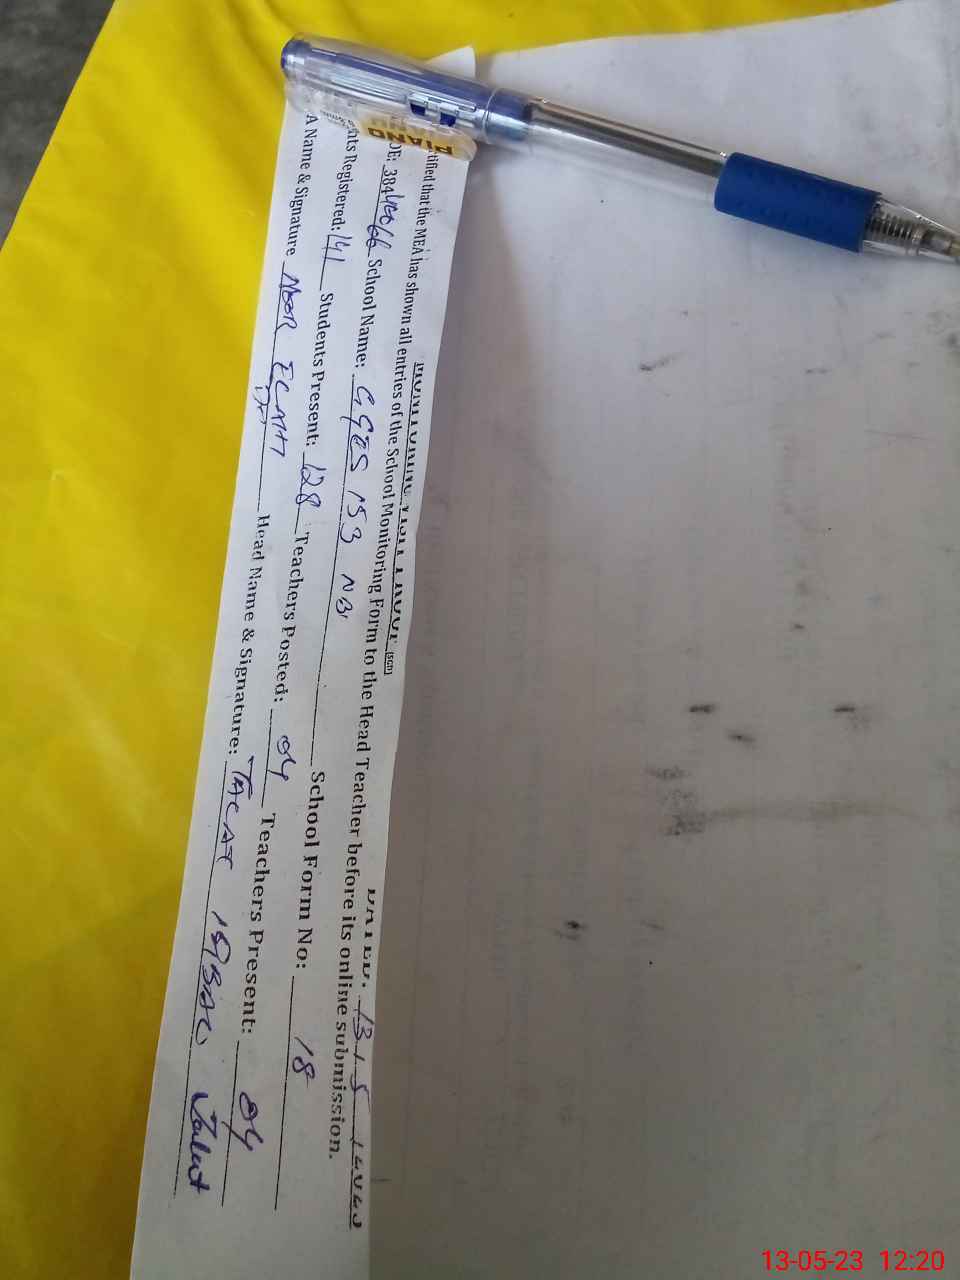 MONITORING VISIT PROOF (SCH) DATED: 13/5/2023
tified that the MEA has shown all entries of the School Monitoring Form to the Head Teacher before its online submission.
DE: School Name: GGES 153 NB School Form No: 18
nts Registered: 141 Students Present: 128 Teachers Posted: 04 Teachers Present: 04
A Name & Signature NOOR Head Name & Signature:
PIANO
13-05-23 12:20